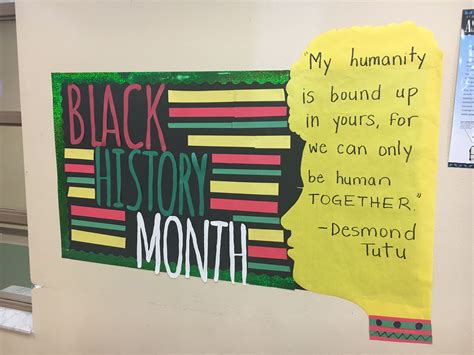 BLACK
HISTORY
MONTH
"My humanity
is bound up
in yours, for
we can only
be human
TOGETHER."
-Desmond
Tutu